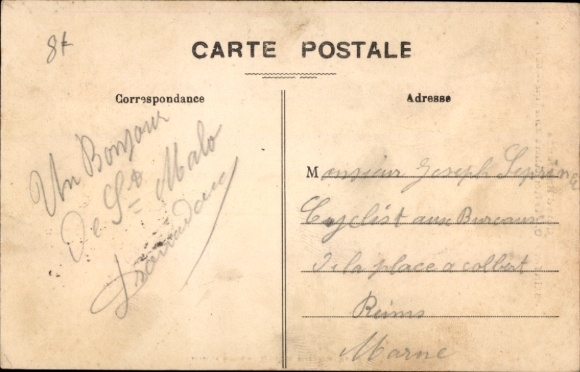 8+
CARTE POSTALE
Correspondance
Adresse
Un Bonjour
De St Malo
Monsieur Joseph
Cyclist aux Bureaux
De la place a colbert
Reims
Marne